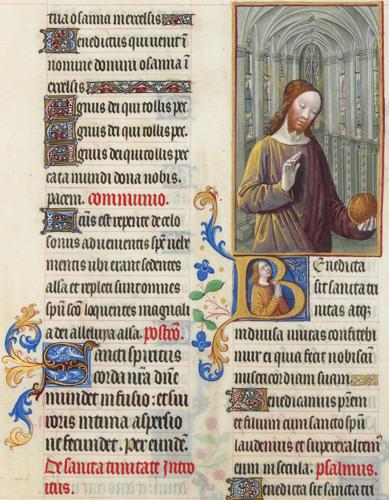 tua osanna in excelsis
Benedictus qui uenit i
nomine domini osanna i
excelsis
Agnus dei qui tollis pec
Agnus dei qui tollis pec.
Agnus dei qui tollis pec
cata mundi dona nobis.
pacem. communio.
Factus est repente de celo
sonus aduenientis sps uehe
mentis ubi erant sedentes
alla et repleti sunt omnes
spu sco loquentes magnali
a dei alleluya alla. postco.
Sancti spiritus
corda nra dne
mundet infusio: et sui
roris intima aspersio
ne fecundet. Per eunde
De sancta trinitate Intro
itus.
Benedicta
sit sancta tri
nitas atq
indiuisa unitas confitebi
mur ei quia fecit nobiscu
misericordiam suam
Benedicamus prem
et filium cum sancto spu
laudemus et superexaltem
eum in secula. psalmus.
Benedicta sit sancta tri